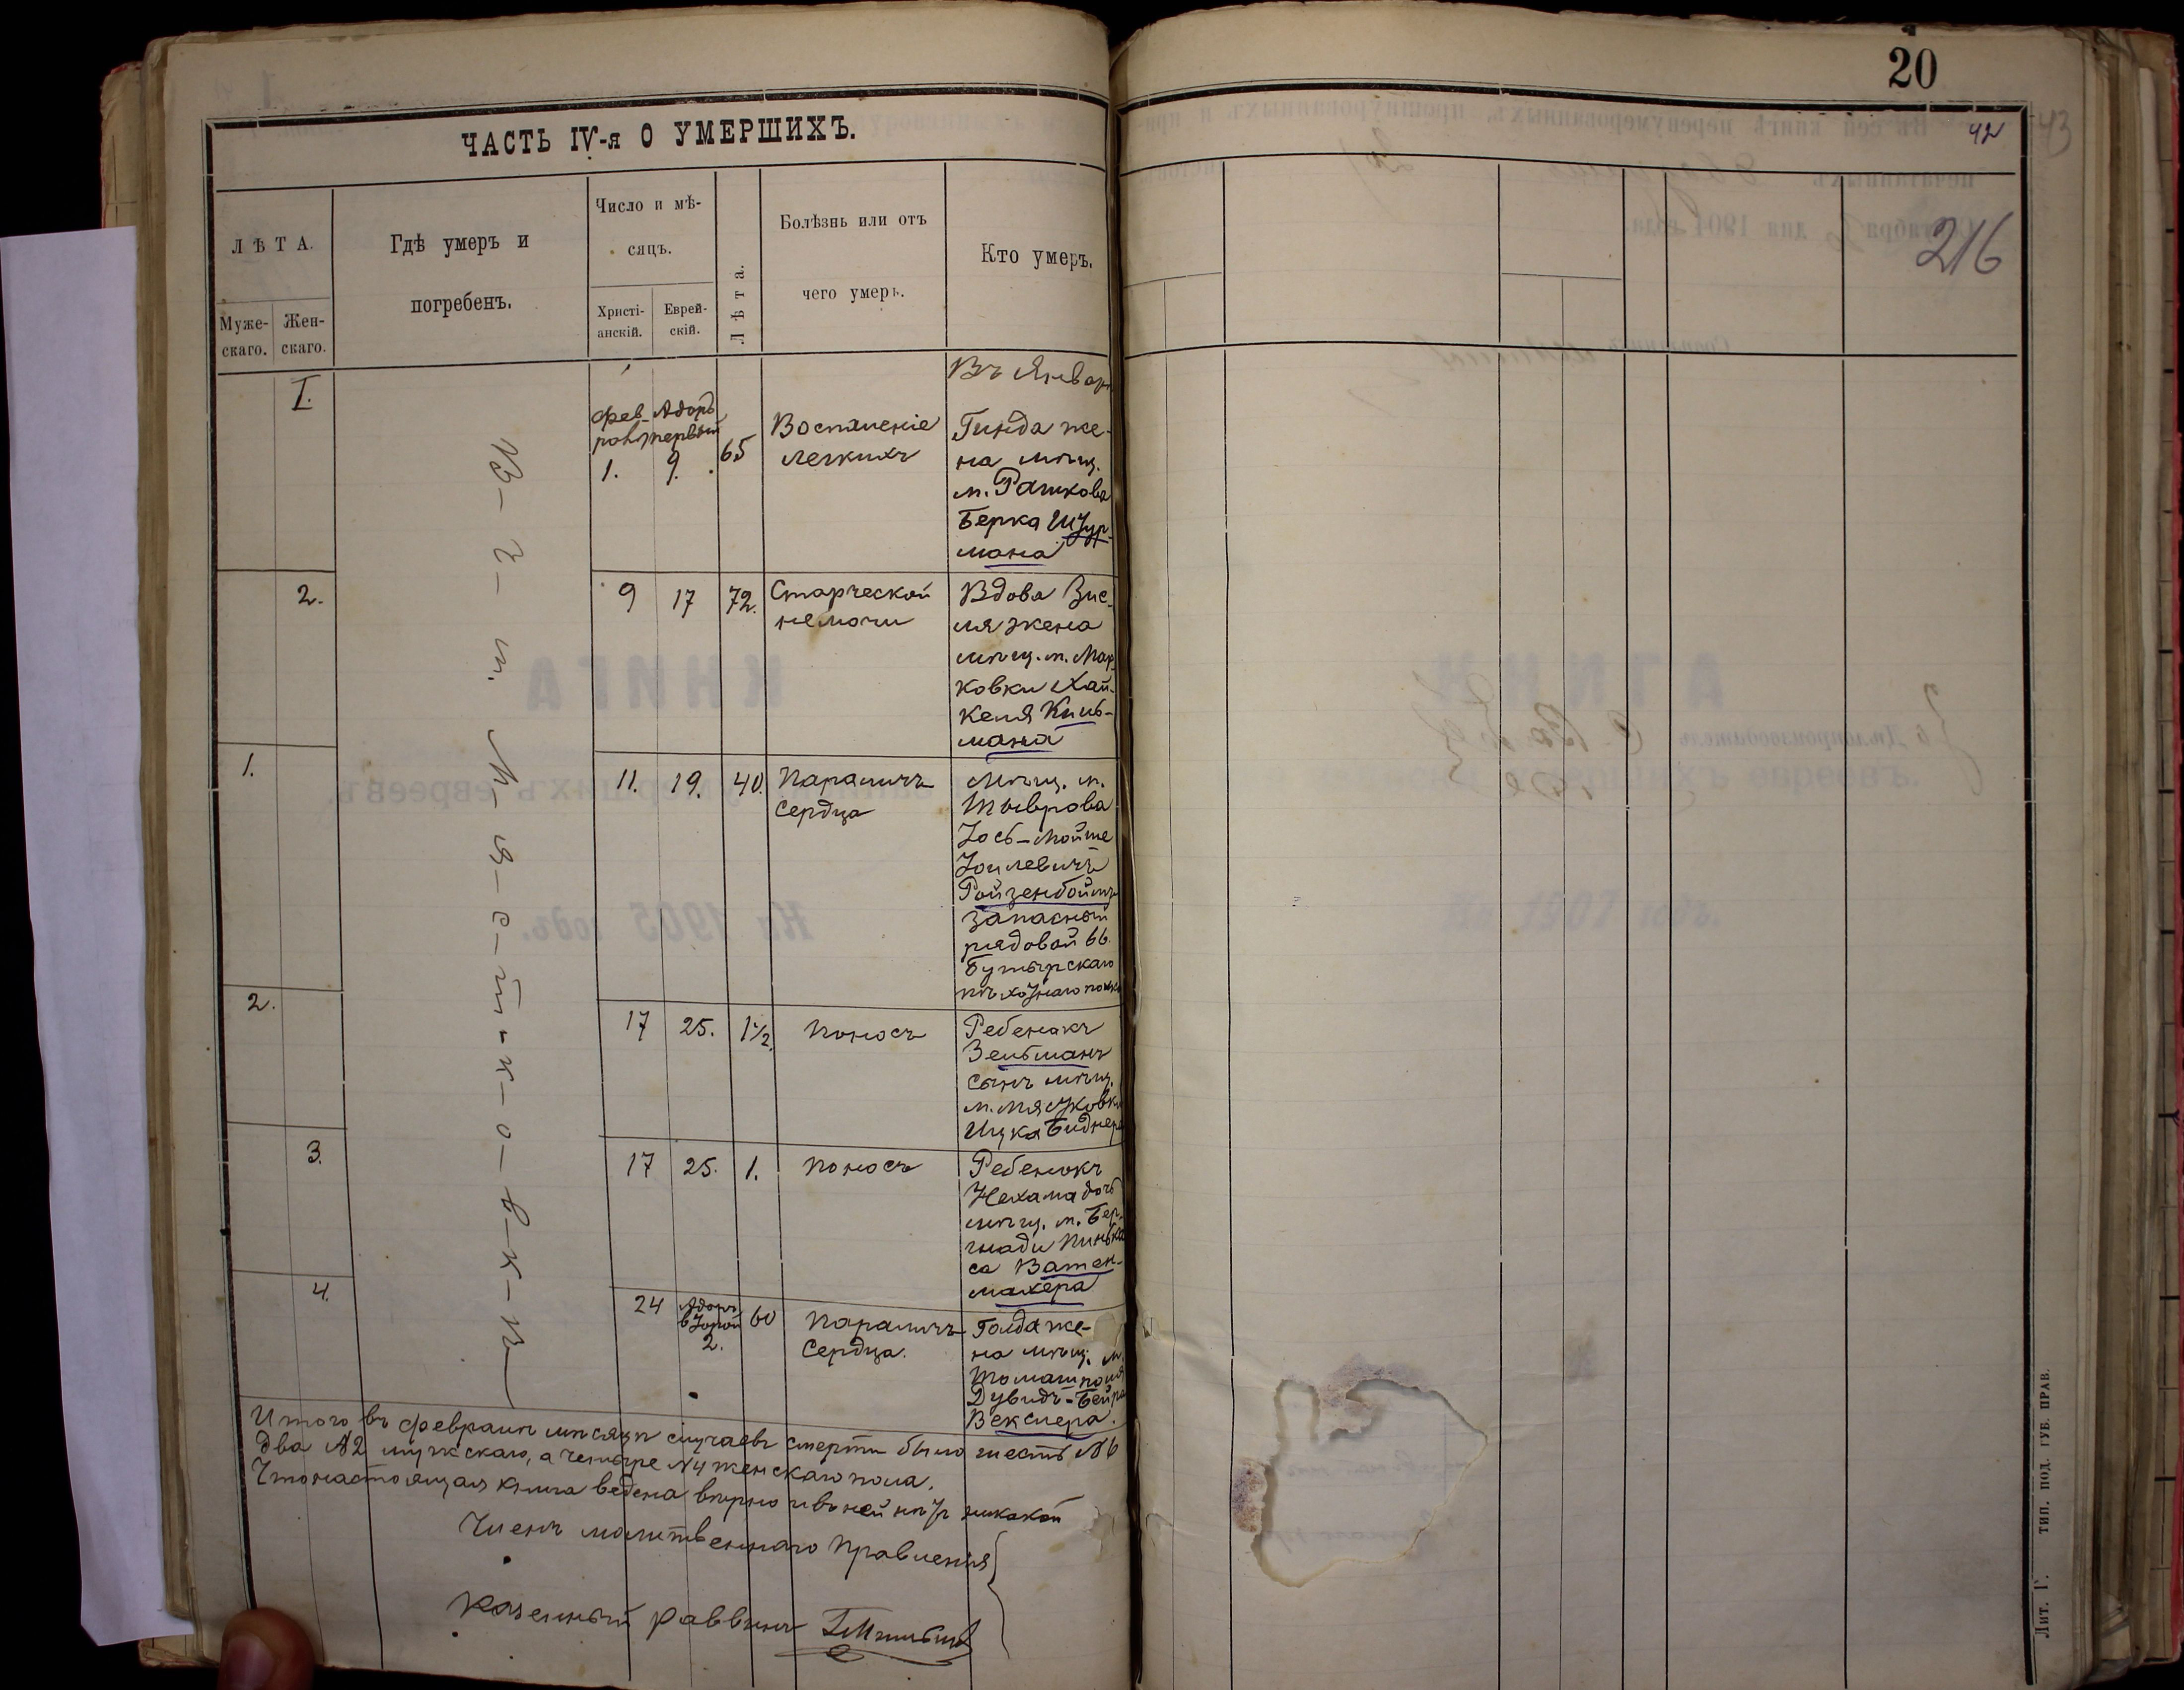 20
42
43
216
ЧАСТЬ IV-я О УМЕРШИХЪ.
ЛѢТА.
Муже-
скаго.
Жен-
скаго.
Гдѣ умеръ и
погребенъ.
Число и мѣ-
сяцъ.
Христі-
анскій.
Еврей-
скій.
Лѣта.
Болѣзнь или отъ
чего умеръ.
Кто умеръ.
В-ъ - м. М-я-с-т-к-о-в-к-ѣ
Въ Январѣ
I.
Фев-
Адаръ
первый
1.
9.
65
Воспаленіе
легкихъ
Гинда же-
на мѣщ.
м. Рашкова
Берка Штур-
мана
2.
9
17
72.
Старческой
немочи
Вдова Зис-
ля жена
мѣщ. м. Мар-
ковки Хай-
келя Киль-
мана
1.
11.
19.
40.
Параличъ
сердца
Мѣщ. м.
Тыврова
Іось-Мойше
Іоилевичъ
Ройзенбоймъ
запасный
рядовой 66.
Бутырскаго
пѣхотнаго полка
2.
17
25.
1½.
Поносъ
Ребенокъ
Зельманъ
сынъ мѣщ.
м. Мястковки
Ицка Биднера
3.
17
25.
1.
Поносъ
Ребенокъ
Нехама дочь
мѣщ. м. Бер-
шади Пинька-
са Ватен-
махера
4.
24
Адаръ
второй
2.
60
Параличъ
сердца.
Голда же-
на мѣщ. м.
Томашполя
Дувидъ-Бейра
Векслера.
Итого въ Февралѣ мѣсяцѣ случаевъ смерти было шесть №6
два №2 мужскаго, а четыре №4 женскаго пола.
Что настоящая книга ведена вѣрно и въ ней нѣтъ никакой
Членъ молитвеннаго Правленія
Казенный раввинъ
Лит. Г. ТИП. ПОД. ГУБ. ПРАВ.